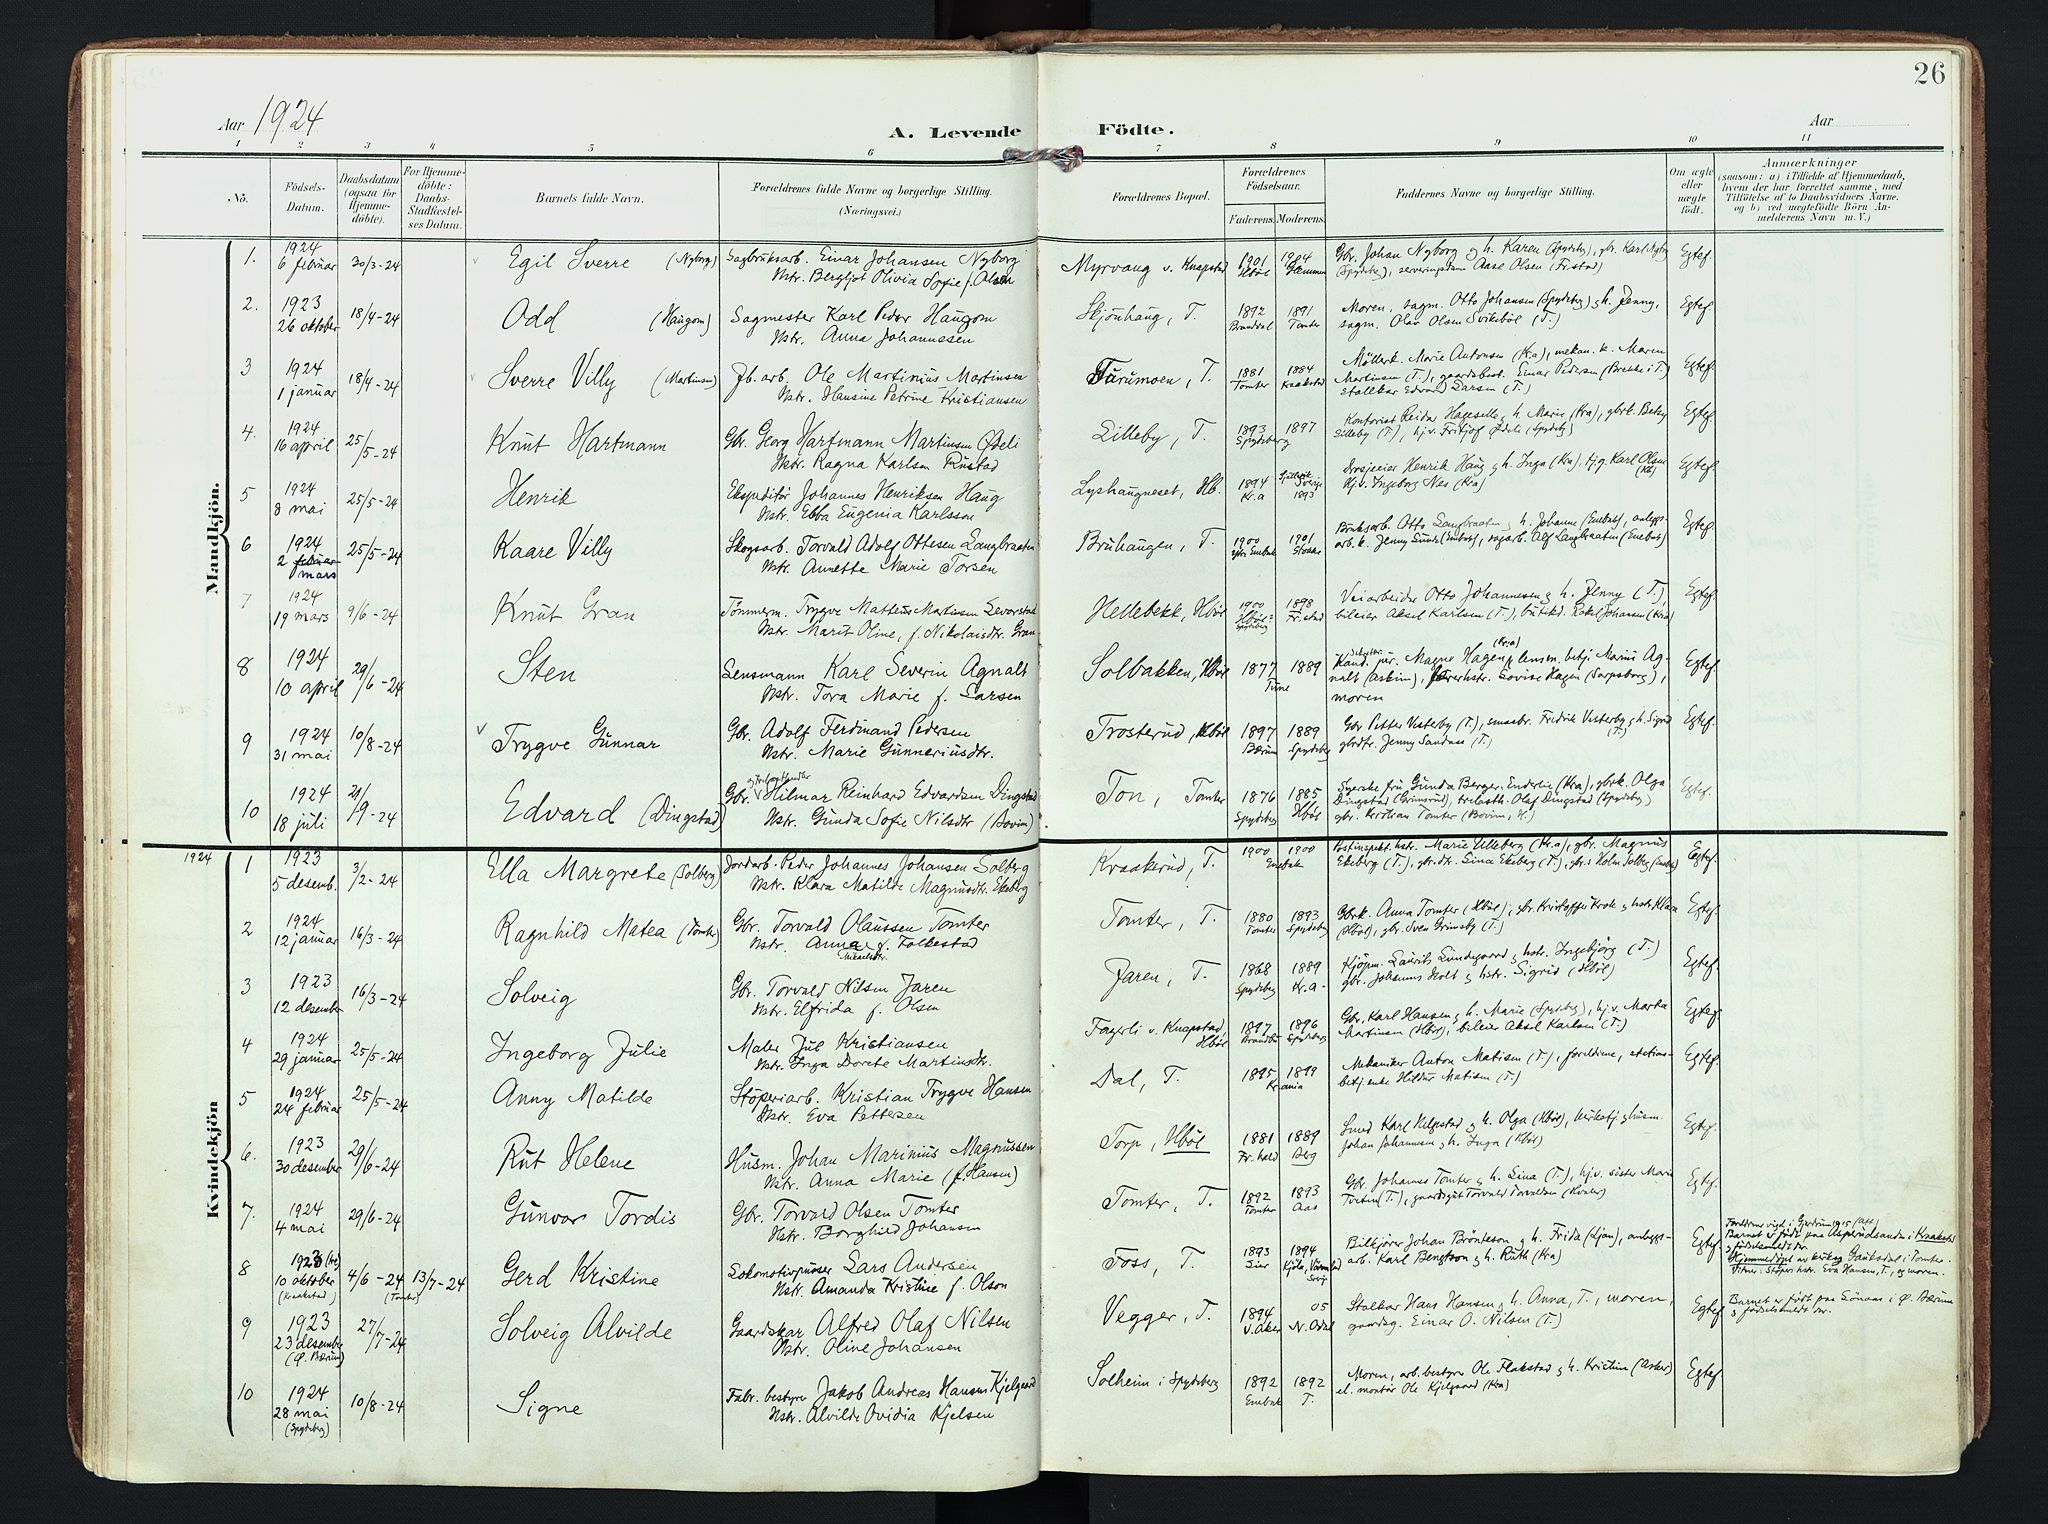 26
Aar 1924
A. Levende Födte.
Aar
1 2 3 4 5 6 7 8 9 10 11
Nö.
Födsels-Datum.
Daabsdatum (ogsaa for Hjemmedöbte).
For Hjemmedöbte: Daabs-Stadfæstelses Datum.
Barnets fulde Navn.
Forældrenes fulde Navne og borgerlige Stilling. (Næringsvei.)
Forældrenes Bopæl.
Forældrenes Födselsaar.
Faderens. Moderens.
Faddernes Navne og borgerlige Stilling.
Om ægte eller uægte födt.
Anmærkninger
(saasom: a) i Tilfælde af Hjemmedaab, hvem der har forrettet samme, med Tilföielse af to Daabsvidners Navne. og b) ved uægtefödte Börn Anmelderens Navn m. V.)
Mandkjön.
1. 1924 6 februar 30/3-24 Egil Sverre (Nyborg) Sagbruksarb. Einar Johansen Nyborg
Hstr. Bergljot Olivia Sofie f. Olsen Myrvang v. Knapstad 1901 Hböl 1904 Gbr. Johan Nyborg og h. Karen (Spydeb), gbr. Karl Nyborg
(Spydeb), serveringsdame Aase Olsen (Fr.stad) Egtef.
2. 1923 26 oktober 18/4-24 Odd (Haugom) Sagmester Karl Peder Haugom
Hstr. Anna Johannessen Skjönhaug, T. 1892 1891 Tomter Moren, sagm. Otto Johansen (Spydeb) og h. Jenny,
sagm. Olav Olsen Sviksböl (T.) Egtef.
3 1924 1 januar 18/4-24 Sverre Villy (Martinsen) Jb. arb. Ole Martinius Martinsen
Hstr. Hansine Petrine Kristiansen Furumoen, T. 1881 Tomter 1884 Kraakstad Möllerk. Marie Antonsen (Kra), mekan. k. Maren
Martinsen (T.), gaardsbest. Einar Pedersen (Brekke i T.)
stallkar Edvard Larsen (T.) Egtef.
4. 1924 16 april 25/5-24 Knut Hartmann Gbr. Georg Hartmann Martinsen Ödeli
Hstr. Ragna Karlsen Rustad Lilleby, T. 1893 1897 Spydeberg Kontorist Reidar Hageselle og h. Marie (Kra), gbrk. Betzy
Lilleby (T.), hj.v. Fritjof Ödeli (Spydeb) Egtef.
5 1924 8 mai 25/5-24 Henrik Ekspeditör Johannes Henriksen Haug
Hstr. Ebba Eugenia Karlsson Lyshaugneset, Hb. 1894 Kr.a Sverige 1893 Drosjeeier Henrik Haug og h. Inga (Kra), tj.g. Karl Olsen
Hj.v. Ingeborg Nes (Kra) Egtef.
6 1924 2 februar mars 25/5-24 Kaare Villy Skogsarb. Torvald Adolf Ottesen Langbraaten
Hstr. Annette Marie Torsen Bruhaugen, T. 1900 Enebak 1901 Bruksarb. Otto Langbraaten og h. Johanne (Enebak), anleggs-
arb. k. Jenny Sund (Enebak), sagarb. Alf Langbraaten (Enebak) Egtef.
7 1924 19 mars 9/6-24 Knut Gran Tömmerm. Trygve Matteus Martinsen Levorstad
Hstr. Marit Oline, f. Nikolaisdtr. Gran Hellebekk, Hböl 1900 Hböl-Spydeberg 1898 Fr.stad Veiarbeider Otto Johannesen og h. Jenny (T.),
bileier Aksel Karlsen (T.), butikd. Rakel Johansen (Kra) Egtef.
8 1924 10 april 29/6-24 Sten Lensmann Karl Severin Agnalt
Hstr. Tora Marie f. Larsen Solbakken, Hböl 1877 1889 Tune Kand. jur. Magne Hagen (Kr.a) lensm. betj. Marius Ag-
nalt (Askim), Lovise Hagen (Sarpsborg),
moren Egtef.
9 1924 31 mai 10/8-24 Trygve Gunnar Gbr. Adolf Ferdinand Pedersen
Hstr. Marie Gunneriusdtr. Trosterud, Hböl 1897 Bærum 1889 Spydeberg Gbr Petter Vesteby (T.), smaabr. Fredrik Vesterby og h. Sigrid (T.)
gbrdtr. Jenny Sandaas (T.) Egtef.
10 1924 18 juli 21/9-24 Edvard (Dingstad) Gbr. og trelasthandler Hilmar Reinhard Edvardsen Dingstad
Hstr. Gunda Sofie Nilsdtr (Bovim) Ton, Tomter 1876 Spydeberg 1885 Hböl fru Gunda Berger Enderlie (Kra), gbrk. Olga
Dingstad (Grimsrud), trelasth. Olaf Dingstad (Spydeb)
gbr. Kristian Tomter (Bovim, H.) Egtef.
Kvindekjön
1924 1 1923 5 desemb. 3/2-24 Ella Margrete (Solberg) Jordarb. Peder Johannes Johansen Solberg
Hstr. Klara Matilde Magnusdtr. Ekeberg Kraakerud, T. 1900 1900 Enebak Postinspekt. hstr. Marie Ulleberg (Kr.a), gbr. Magnus
Ekeberg (T.), gbr.dtr. Lina Ekeberg (T.), gbr. s Holm Solberg (Enebak) Egtef.
2 1924 12 januar 16/3-24 Ragnhild Matea (Tomter) Gbr. Torvald Olaussen Tomter
Hstr. Anna Mikaelsdtr. f. Falkestad Tomter, T. 1880 Tomter 1893 Spydeberg Gbrk. Anna Tomter (Hböl), gbr. Kristoffer Krok og hstr. Klara
(Hböl), gbr. Sven Grimsby (T.) Egtef.
3 1923 12 desember 16/3-24 Solveig Gbr. Torvald Nilsen Jaren
Hstr. Elfrida f. Olsen Jaren, T. 1868 Spydeberg 1889 Kr.a- Kjöpm. Laurits Lundegaard og hstr. Ingebjörg (T.)
gbr. Johannes Holt og hstr. Sigrid (Hböl) Egtef.
4 1924 29 januar 25/5-24 Ingeborg Julie Maler Jul Kristiansen
Hstr. Inga Dorete Martinsdtr. Fagerli v. Knapstad, Hböl 1897 Brandbu 1896 Spydeberg Gbr. Karl Hansen og h. Marie (Spydeb), hj.v. Marta
Martinsen (Hböl), bileier Aksel Karlsen (T.) Egtef.
5 1924 24 februar 25/5-24 Anny Matilde Stöperiarb. Kristian Trygve Hansen
Hstr. Eva Pettersen Dal, T. 1895 1899 Kr.ania Mekaniker Anton Matisen (T.), foreldrene, stations-
betj. enke Hildur Matisen (T.) Egtef.
6. 1923 30 desember 29/6-24 Rut Helene Husm. Johan Marinius Magnussen
Hstr. Anna Marie (f. Hansen) Torp, Hböl 1881 Fr.hald 1889 Berg Smed Karl Kilpstad og h. Olga (Hböl), kirketj. og husm.
Johan Johannesen og h. Inga (Hböl) Egtef.
7. 1924 4 mai 29/6-24 Gunvor Tordis Gbr. Torvald Olsen Tomter
Hstr. Borghild Johansen Tomter, T. 1892 Tomter 1893 Aas Gbr. Johannes Tomter og h. Lina (T.), hj.v. sister Marie
Tvetin (T.), gaardsgut Torvald Torvaldsen (Hvaler) Egtef.
8 1923 10 oktober (Kraakstad) 4/6-24 (Tomter) 13/7-24 Gerd Kristine Lokomotivpusser Lars Andersen
Hstr. Amanda Kristine f. Olson Foss, T. 1893 Lier 1894 Kjöla, Värmland Bilkjörer Johan Brönteson og h. Frida (Ljan), anleggs-
arb. Karl Bengtson og h. Ruth (Kra) Egtef. Foreldrene vigd i Gjerdrum 1915
Barnet er födt paa Asperudsanden i Kraakstad
og födselsmeldt der
Hjemmedöpt av kirkesg. Gaukedal i Tomter.
Vitner: Stöperi hstr. Eva Hansen, T., og moren.
9 1923 23 desember (Ö. Bærum) 27/7-24 Solveig Alvilde Gaardskar Alfred Olaf Nilsen
Hstr. Oline Johansen Vegger, T. 1894 V. Aker 05 N. Odal Stalkar Hans Hansen og h. Anna, T., moren,
gaardsg. Einar O. Nilsen (T.) Egtef. Barnet er födt paa Lönaas i Ö. Bærum
og födselsmeldt der.
10 1924 28 mai (Spydeberg) 10/8-24 Signe Fabr. bestyrer Jakob Andreas Hansen Kjelgaard
Hstr. Alvilde Ovidia Kjelsen Solheim i Spydeberg 1892 Enebak 1892 T. Moren, arb. bestyrer Ole Flakstad og h. Kristine (Asker)
el. montör Ole Kjelgaard (Kra) Egtef.